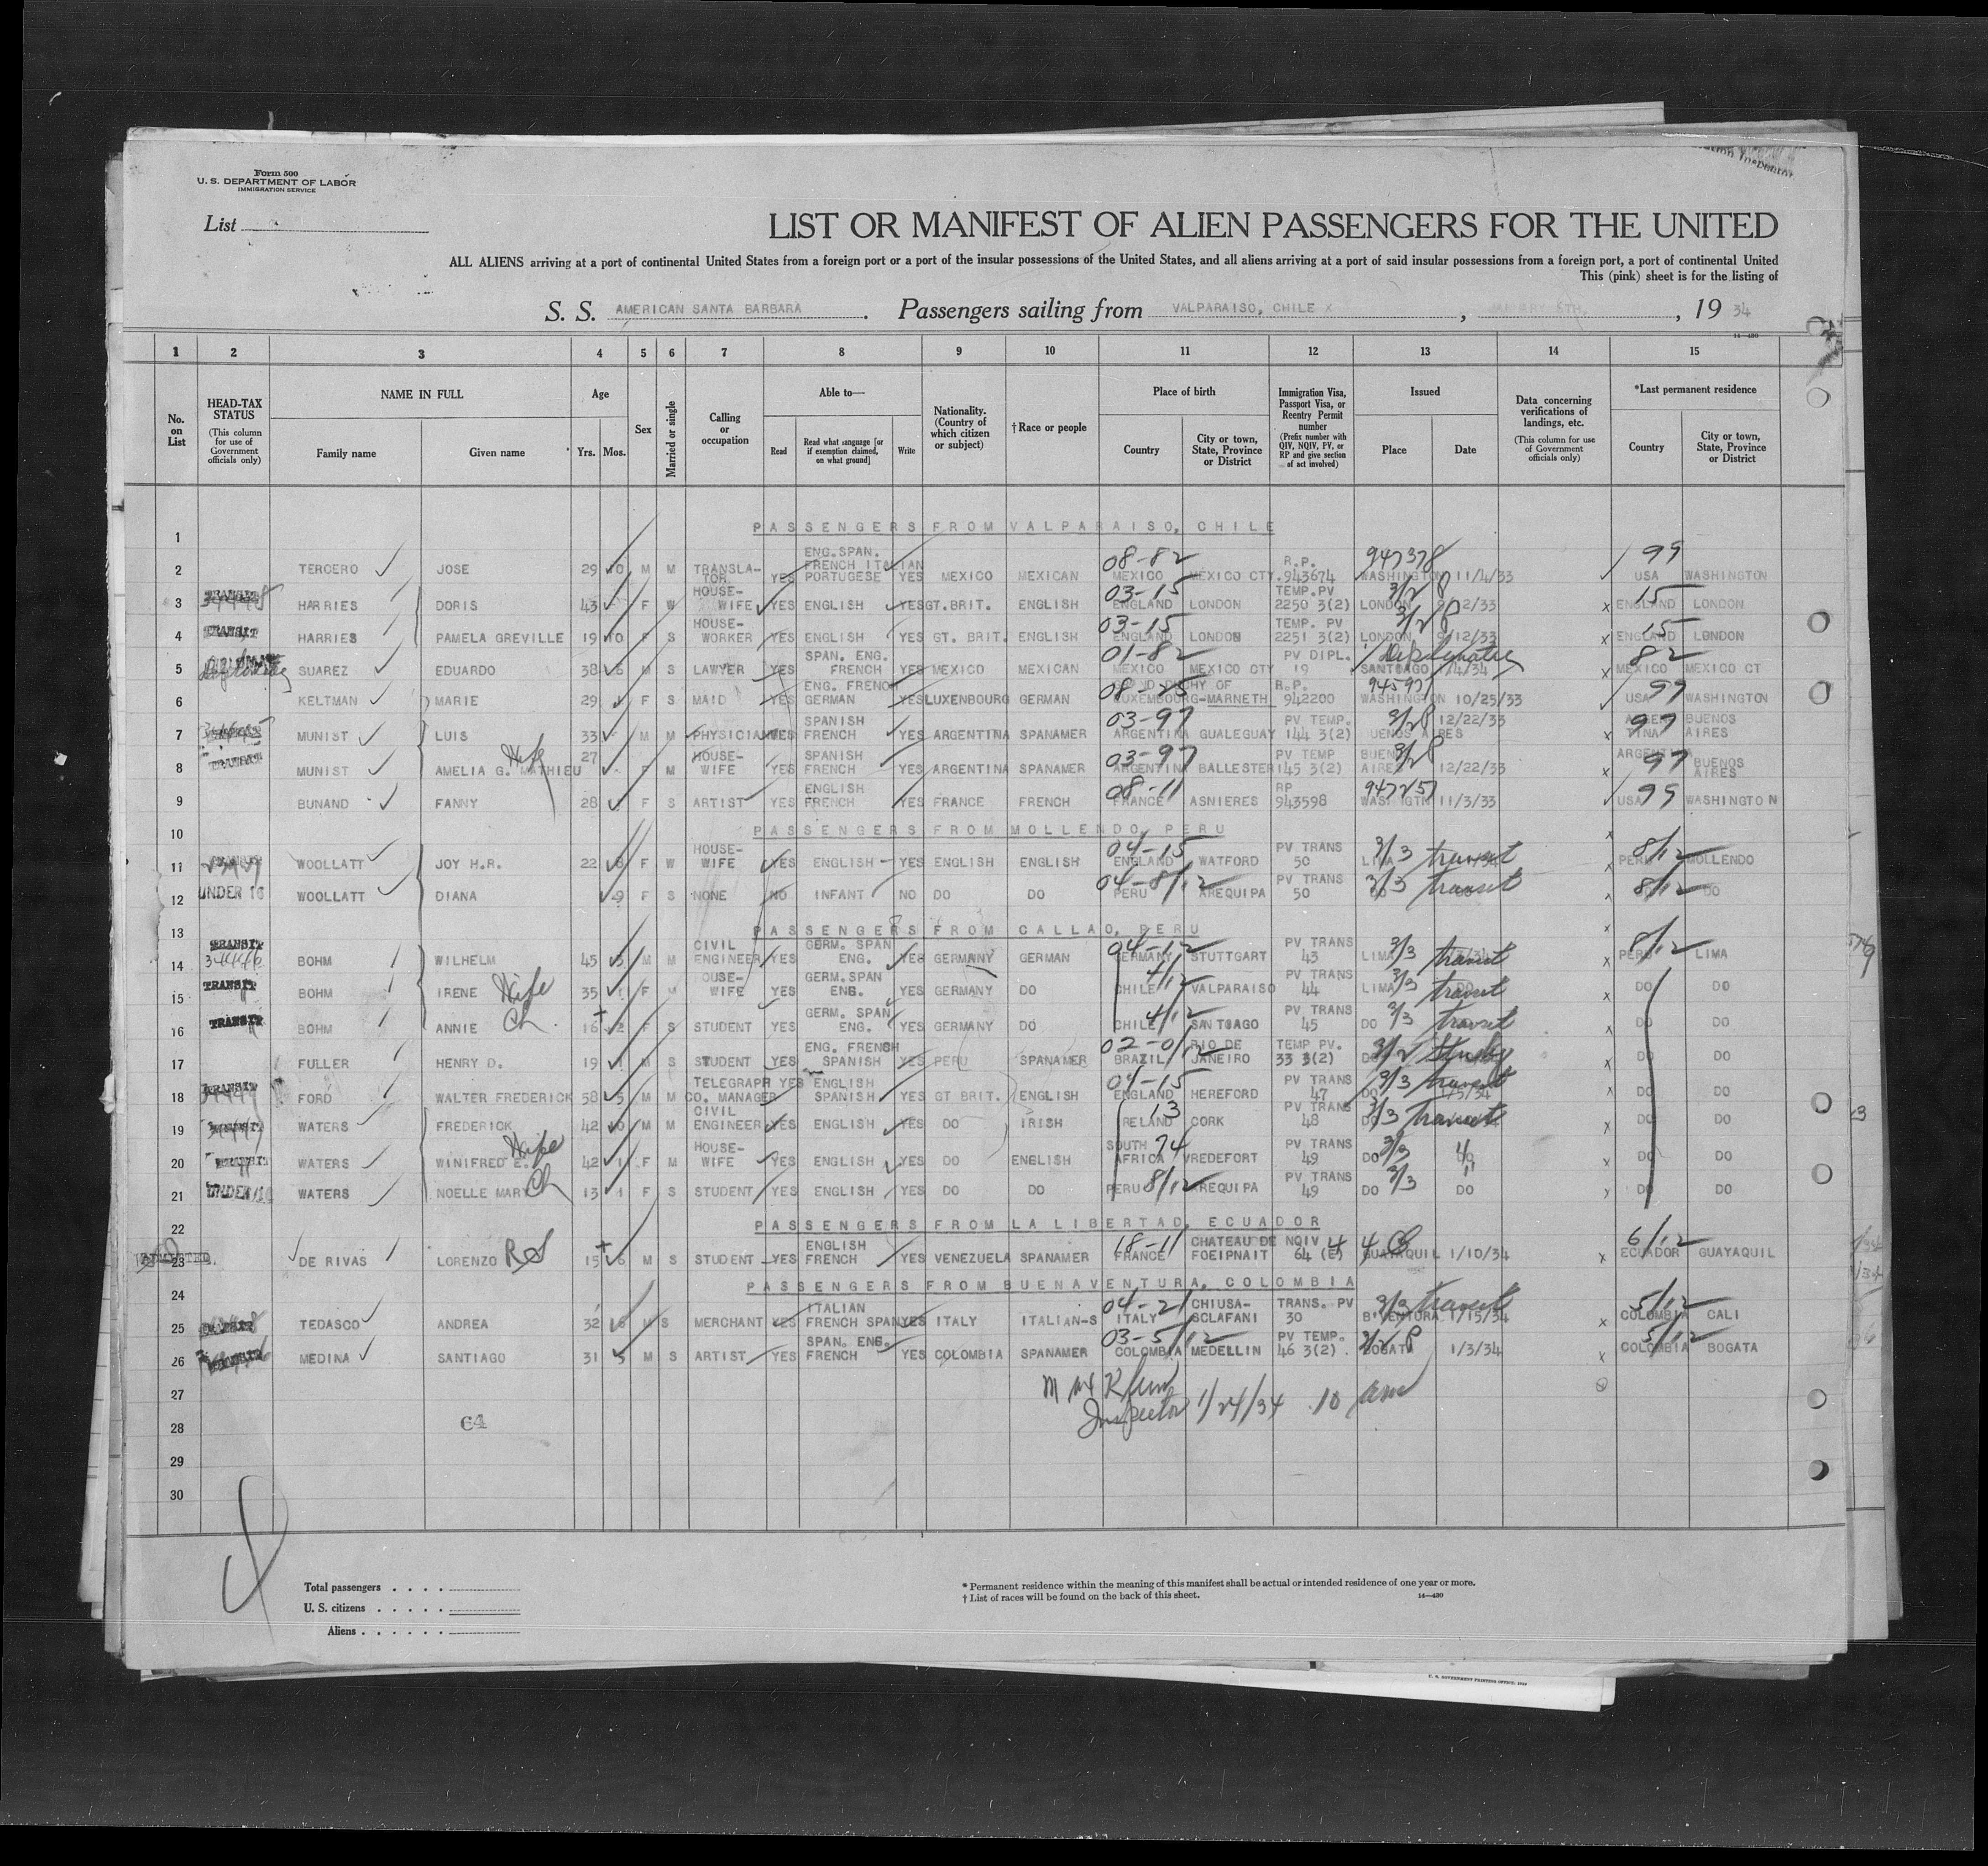 Form 500
U. S. DEPARTMENT OF LABOR
IMMIGRATION SERVICE
List
LIST OR MANIFEST OF ALIEN PASSENGERS FOR THE UNITED
ALL ALIENS arriving at a port of continental United States from a foreign port or a port of the insular possessions of the United States, and all aliens arriving at a port of said insular possessions from a foreign port, a port of continental United
This (pink) sheet is for the listing of
S. S. AMERICAN SANTA BARBARA . Passengers sailing from VALPARAISO, CHILE X , JANUARY 5TH, , 19 34
14-430
1 2 3 4 5 6 7 8 9 10 11 12 13 14 15
No. on List
HEAD-TAX STATUS (This column for use of Government officials only)
NAME IN FULL
Family name
Given name
Age
Yrs. Mos.
Sex
Married or single
Calling or occupation
Able to—
Read
Read what language [or if exemption claimed, on what ground]
Write
Nationality. (Country of which citizen or subject)
† Race or people
Place of birth
Country
City or town, State, Province or District
Immigration Visa, Passport Visa, or Reentry Permit number (Prefix number with QIV, NQIV, PV, or RP and give section of act involved)
Issued
Place
Date
Data concerning verifications of landings, etc. (This column for use of Government officials only)
*Last permanent residence
Country
City or town, State, Province or District
1 PASSENGERS FROM VALPARAISO, CHILE
2 TERCERO JOSE 29 10 M M TRANSLATOR YES ENG.SPAN. FRENCH ITALIAN PORTUGESE YES MEXICO MEXICAN 08-82 MEXICO MEXICO CTY. R.P. 943674 947378 WASHINGTON 11/4/33 99 USA WASHINGTON
3 TRANSIT HARRIES DORIS 43 F W HOUSE-WIFE YES ENGLISH YES GT.BRIT. ENGLISH 03-15 ENGLAND LONDON TEMP.PV 2250 3(2) 3/2 P LONDON 9/12/33 15 ENGLAND LONDON
4 TRANSIT HARRIES PAMELA GREVILLE 19 10 F S HOUSE-WORKER YES ENGLISH YES GT. BRIT. ENGLISH 03-15 ENGLAND LONDON TEMP. PV 2251 3(2) 3/2 P LONDON 9/12/33 15 ENGLAND LONDON
5 SUAREZ EDUARDO 38 6 M S LAWYER YES SPAN. ENG. FRENCH YES MEXICO MEXICAN 01-82 MEXICO MEXICO CTY PV DIPL. 19 SANTIAGO 1/4/34 82 MEXICO MEXICO CT
6 KELTMAN MARIE 29 F S MAID YES ENG. FRENCH GERMAN YES LUXENBOURG GERMAN 08-25 GRAND DUCHY OF LUXEMBOURG-MARNETH R.P. 942200 WASHINGTON 10/25/33 99 USA WASHINGTON
7 MUNIST LUIS 33 M M PHYSICIAN YES SPANISH FRENCH YES ARGENTINA SPANAMER 03-97 ARGENTINA GUALEGUAY PV TEMP. 144 3(2) 3/2 P BUENOS AIRES 12/22/33 97 BUENOS AIRES
8 TRANSIT MUNIST AMELIA G. MATHIEU Wife 27 F M HOUSE-WIFE YES SPANISH FRENCH YES ARGENTINA SPANAMER 03-97 ARGENTINA BALLESTER PV TEMP 145 3(2) 3/2 P BUENOS AIRES 12/22/33 97 ARGENTINA BUENOS AIRES
9 BUNAND FANNY 28 F S ARTIST YES ENGLISH FRENCH YES FRANCE FRENCH 08-11 FRANCE ASNIERES RP 943598 WASHINGTN 11/3/33 99 USA WASHINGTON
10 PASSENGERS FROM MOLLENDO, PERU
11 WOOLLATT JOY H.R. 22 F W HOUSE-WIFE YES ENGLISH YES ENGLISH ENGLISH 04-15 ENGLAND WATFORD PV TRANS 50 3/3 transit LIMA 8/12 PERU MOLLENDO
12 UNDER 16 WOOLLATT DIANA 9 F S NONE NO INFANT NO DO DO 04-8/12 PERU AREQUIPA PV TRANS 50 3/3 transit DO 8/12 DO DO
13 PASSENGERS FROM CALLAO, PERU
14 TRANSIT BOHM WILHELM 45 M M CIVIL ENGINEER YES GERM. SPAN ENG. YES GERMANY GERMAN 04-12 GERMANY STUTTGART PV TRANS 43 LIMA 3/3 transit 8/12 PERU LIMA
15 TRANSIT BOHM IRENE Wife 35 1 F M HOUSE-WIFE YES GERM.SPAN ENG. YES GERMANY DO 4/12 CHILE VALPARAISO PV TRANS 44 LIMA 3/3 transit DO DO
16 TRANSIT BOHM ANNIE Ch. 16 2 F S STUDENT YES GERM. SPAN ENG. YES GERMANY DO 4/12 CHILE SANTOAGO PV TRANS 45 DO 3/3 transit DO DO
17 FULLER HENRY D. 19 1 M S STUDENT YES ENG. FRENCH SPANISH YES PERU SPANAMER 02-0/12 BRAZIL RIO DE JANEIRO TEMP PV. 33 3(2) DO 3/2 Study DO DO
18 TRANSIT FORD WALTER FREDERICK 58 5 M M TELEGRAPH CO. MANAGER YES ENGLISH SPANISH YES GT BRIT. ENGLISH 04-15 ENGLAND HEREFORD PV TRANS 47 DO 3/3 transit 1/5/34 DO DO
19 WATERS FREDERICK 42 M M CIVIL ENGINEER YES ENGLISH YES DO IRISH 13 IRELAND CORK PV TRANS 48 DO 3/3 transit DO DO
20 TRANSIT WATERS WINIFRED E. Wife 42 1 F M HOUSE-WIFE YES ENGLISH YES DO ENGLISH 74 SOUTH AFRICA VREDEFORT PV TRANS 49 DO 3/3 DO DO
21 UNDER 16 WATERS NOELLE MARY Ch 13 1 F S STUDENT YES ENGLISH YES DO DO PERU 8/12 AREQUIPA PV TRANS 49 DO 3/3 DO DO DO
22 PASSENGERS FROM LA LIBERTAD, ECUADOR
23 ADMITTED DE RIVAS LORENZO 15 6 M S STUDENT YES ENGLISH FRENCH YES VENEZUELA SPANAMER 18-11 FRANCE CHATEAU DE FOEIPNAIT NQIV 64 (E) GUAYAQUIL 1/10/34 6/12 ECUADOR GUAYAQUIL
24 PASSENGERS FROM BUENAVENTURA, COLOMBIA
25 TEDASCO ANDREA 32 M S MERCHANT YES ITALIAN FRENCH SPAN YES ITALY ITALIAN-S 04-21 ITALY CHIUSA-SCLAFANI TRANS. PV 30 3/3 transit B'VENTURA 1/15/34 5/12 COLOMBIA CALI
26 MEDINA SANTIAGO 31 5 M S ARTIST YES SPAN. ENG. FRENCH YES COLOMBIA SPANAMER 03-5/12 COLOMBIA MEDELLIN PV TEMP. 46 3(2). 3/2 P BOGATA 1/3/34 5/12 COLOMBIA BOGATA
27
Inspector 1/24/34 10 am
28
29
30
Total passengers
U. S. citizens
Aliens
* Permanent residence within the meaning of this manifest shall be actual or intended residence of one year or more.
† List of races will be found on the back of this sheet.
14-430
U. S. GOVERNMENT PRINTING OFFICE